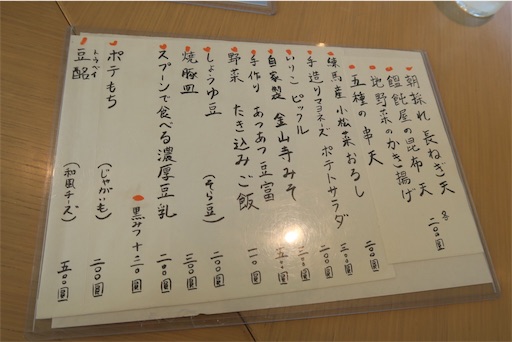 朝採れ 長ねぎ天 各二〇〇円
饂飩屋の昆布天
地野菜のかき揚げ
五種の串天 二〇〇円
練馬産 小松菜おろし 三〇〇円
手造りマヨネーズ ポテトサラダ 二〇〇円
いりこ ピックル
自家製 金山寺みそ
手作り あつあつ豆富
野菜 たき込みご飯
しょうゆ豆 (そら豆) 二〇〇円
焼豚皿 三〇〇円
スプーンで食べる濃厚豆乳 二〇〇円
黒みつ+二〇円
ポテもち (じゃがいも) 二〇〇円
豆酩 トウベイ (和風チーズ) 五〇〇円